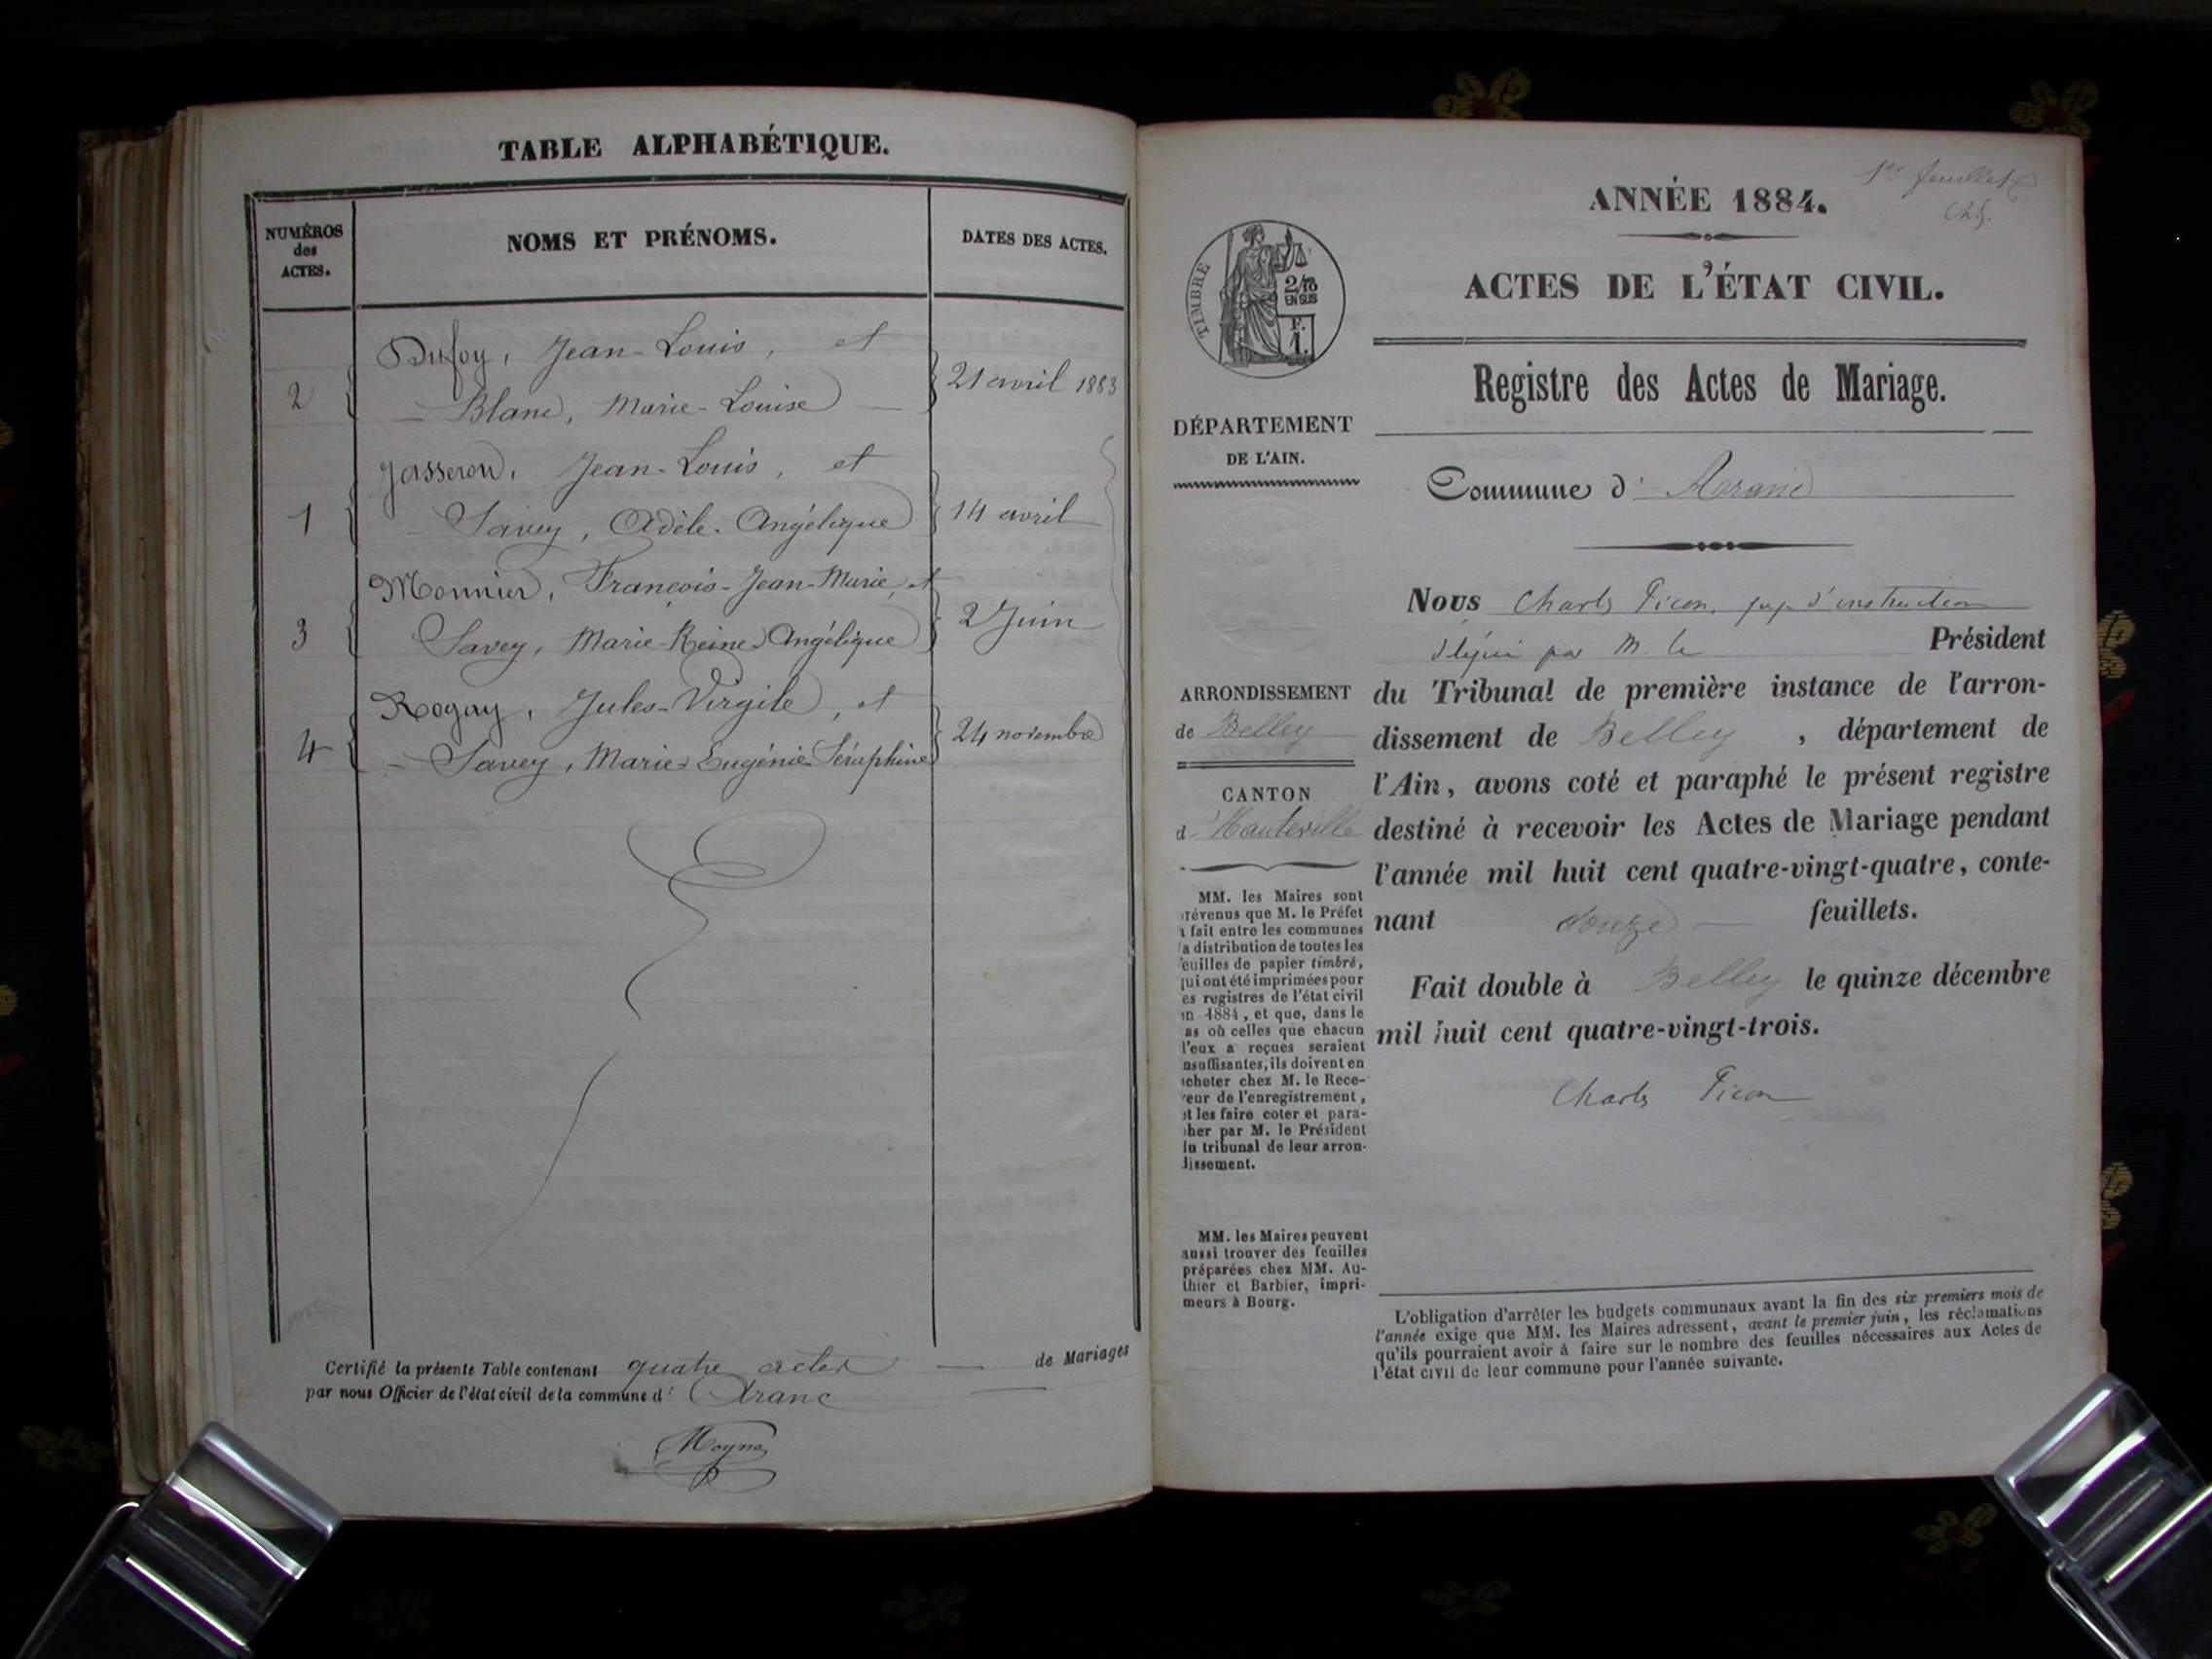 TABLE ALPHABÉTIQUE.
NUMÉROS
des
ACTES.
NOMS ET PRÉNOMS.
DATES DES ACTES.
Dufoy, Jean-Louis, et
2
21 avril 1883
Blanc, Marie-Louise
Jasseron, Jean-Louis, et
1
Savey, Adèle-Angélique
14 avril
Monnier, François-Jean-Marie, et
3
Savey, Marie-Reine-Angélique
2 Juin
Rogay, Jules-Virgile, et
4
Savey, Marie-Eugénie-Séraphine
24 novembre
Certifié la présente Table contenant quatre actes de Mariages
par nous Officier de l'état civil de la commune d' Aranc
Moyne
1er feuillet
ANNÉE 1884.
TIMBRE
2/10
EN SUS
F.
1.
ACTES DE L'ÉTAT CIVIL.
Registre des Actes de Mariage.
DÉPARTEMENT
DE L'AIN.
Commune d' Aranc
Nous Charles Picon, juge d'instruction
délégué par M. le Président
du Tribunal de première instance de l'arron-
dissement de Belley, département de
l'Ain, avons coté et paraphé le présent registre
destiné à recevoir les Actes de Mariage pendant
l'année mil huit cent quatre-vingt-quatre, conte-
nant douze feuillets.
Fait double à Belley le quinze décembre
mil huit cent quatre-vingt-trois.
Charles Picon
ARRONDISSEMENT
de Belley
CANTON
d'Hauteville
MM. les Maires sont
révenus que M. le Préfet
a fait entre les communes
la distribution de toutes les
feuilles de papier timbré,
qui ont été imprimées pour
es registres de l'état civil
en 1884, et que, dans le
as où celles que chacun
d'eux a reçues seraient
nsuffisantes, ils doivent en
acheter chez M. le Rece-
veur de l'enregistrement,
et les faire coter et para-
pher par M. le Président
du tribunal de leur arron-
dissement.
MM. les Maires peuvent
aussi trouver des feuilles
préparées chez MM. Au-
thier et Barbier, impri-
meurs à Bourg.
L'obligation d'arrêter les budgets communaux avant la fin des six premiers mois de
l'année exige que MM. les Maires adressent, avant le premier juin, les réclamations
qu'ils pourraient avoir à faire sur le nombre des feuilles nécessaires aux Actes de
l'état civil de leur commune pour l'année suivante.